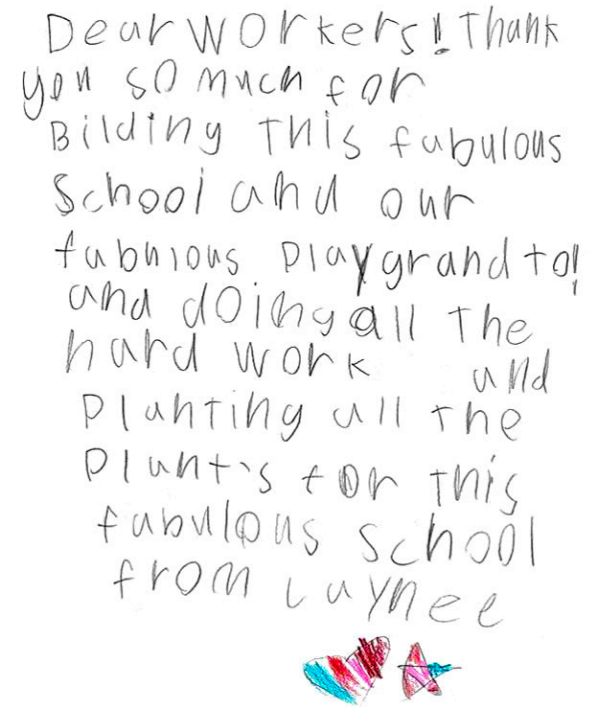 Dear workers! Thank
you so much for
Bilding This fabulous
School and our
fabulous playgrand to!
and doing all The
hard work and
Planting all The
Plants for This
fabulous School
from Laynee